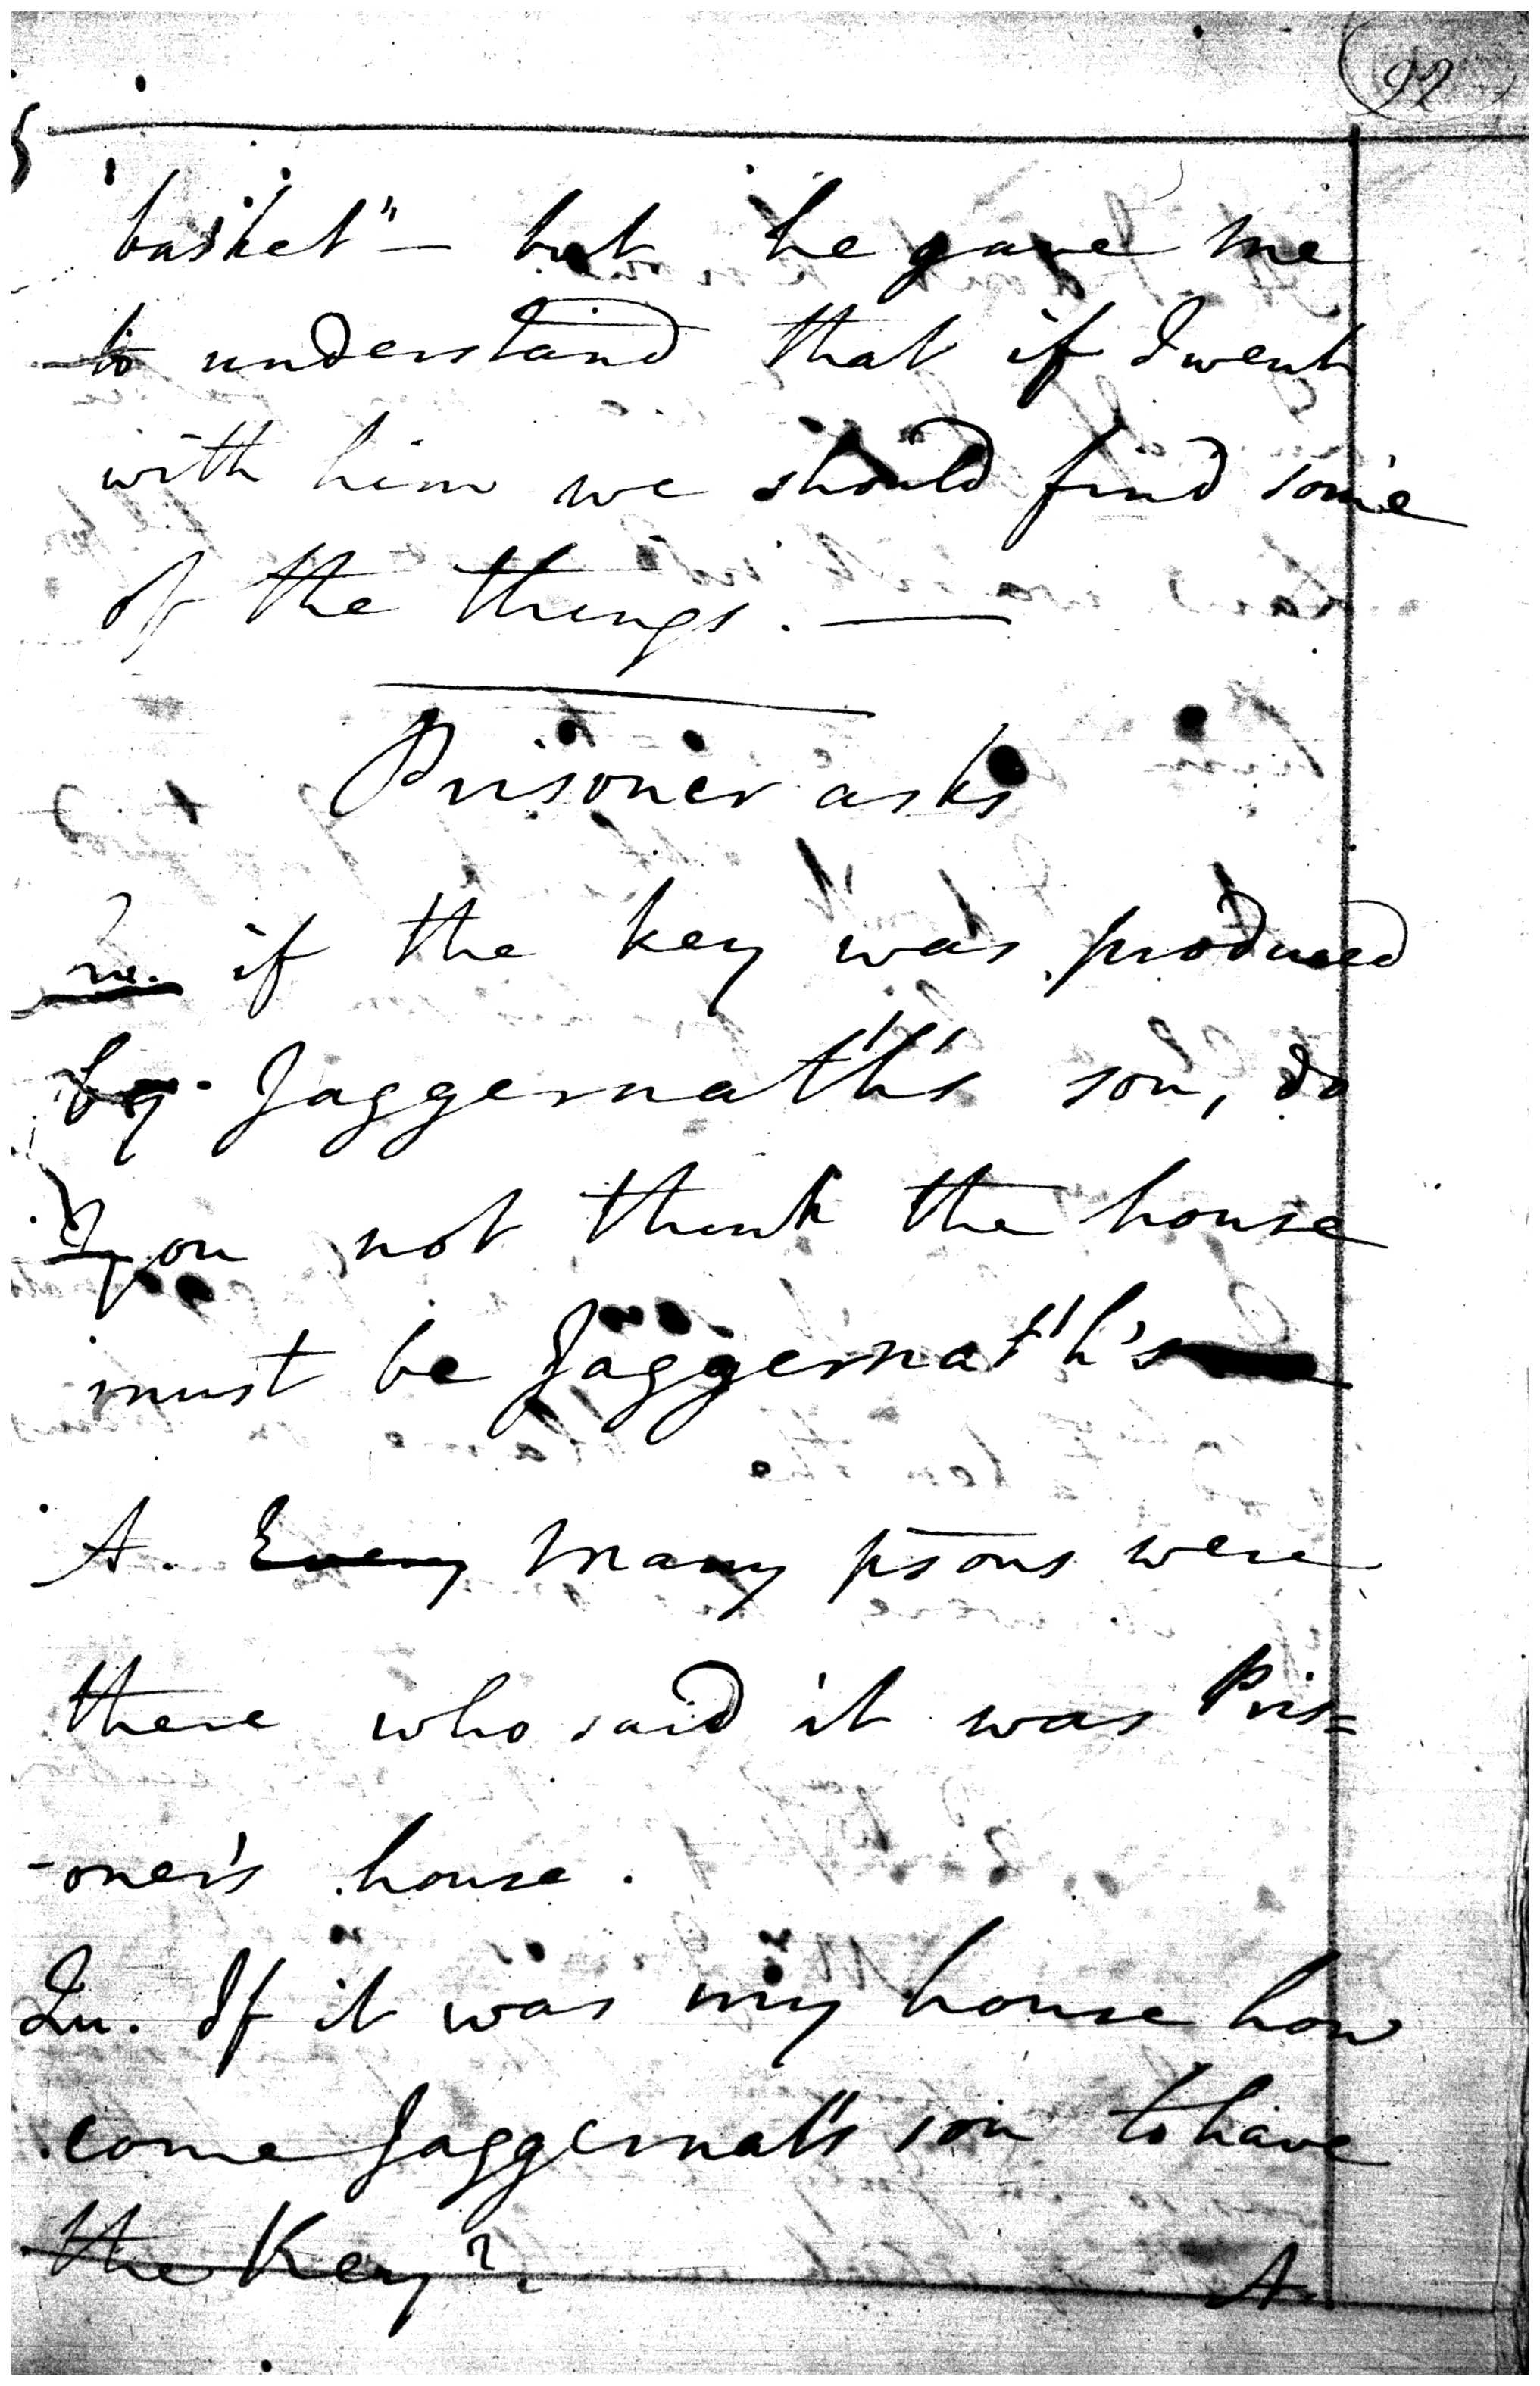 92
basket" — but he gave me
to understand that if I went
with him we should find some
of the things. —
Prisoner asks
Qu. if the key was produced
by Jaggernath's son, do
you not think the house
must be Jaggernath's
A. Every many psons were
there who said it was Pris=
-oner's house.
Qu. If it was my house how
come Jaggernath's son to have
the Key?
A.